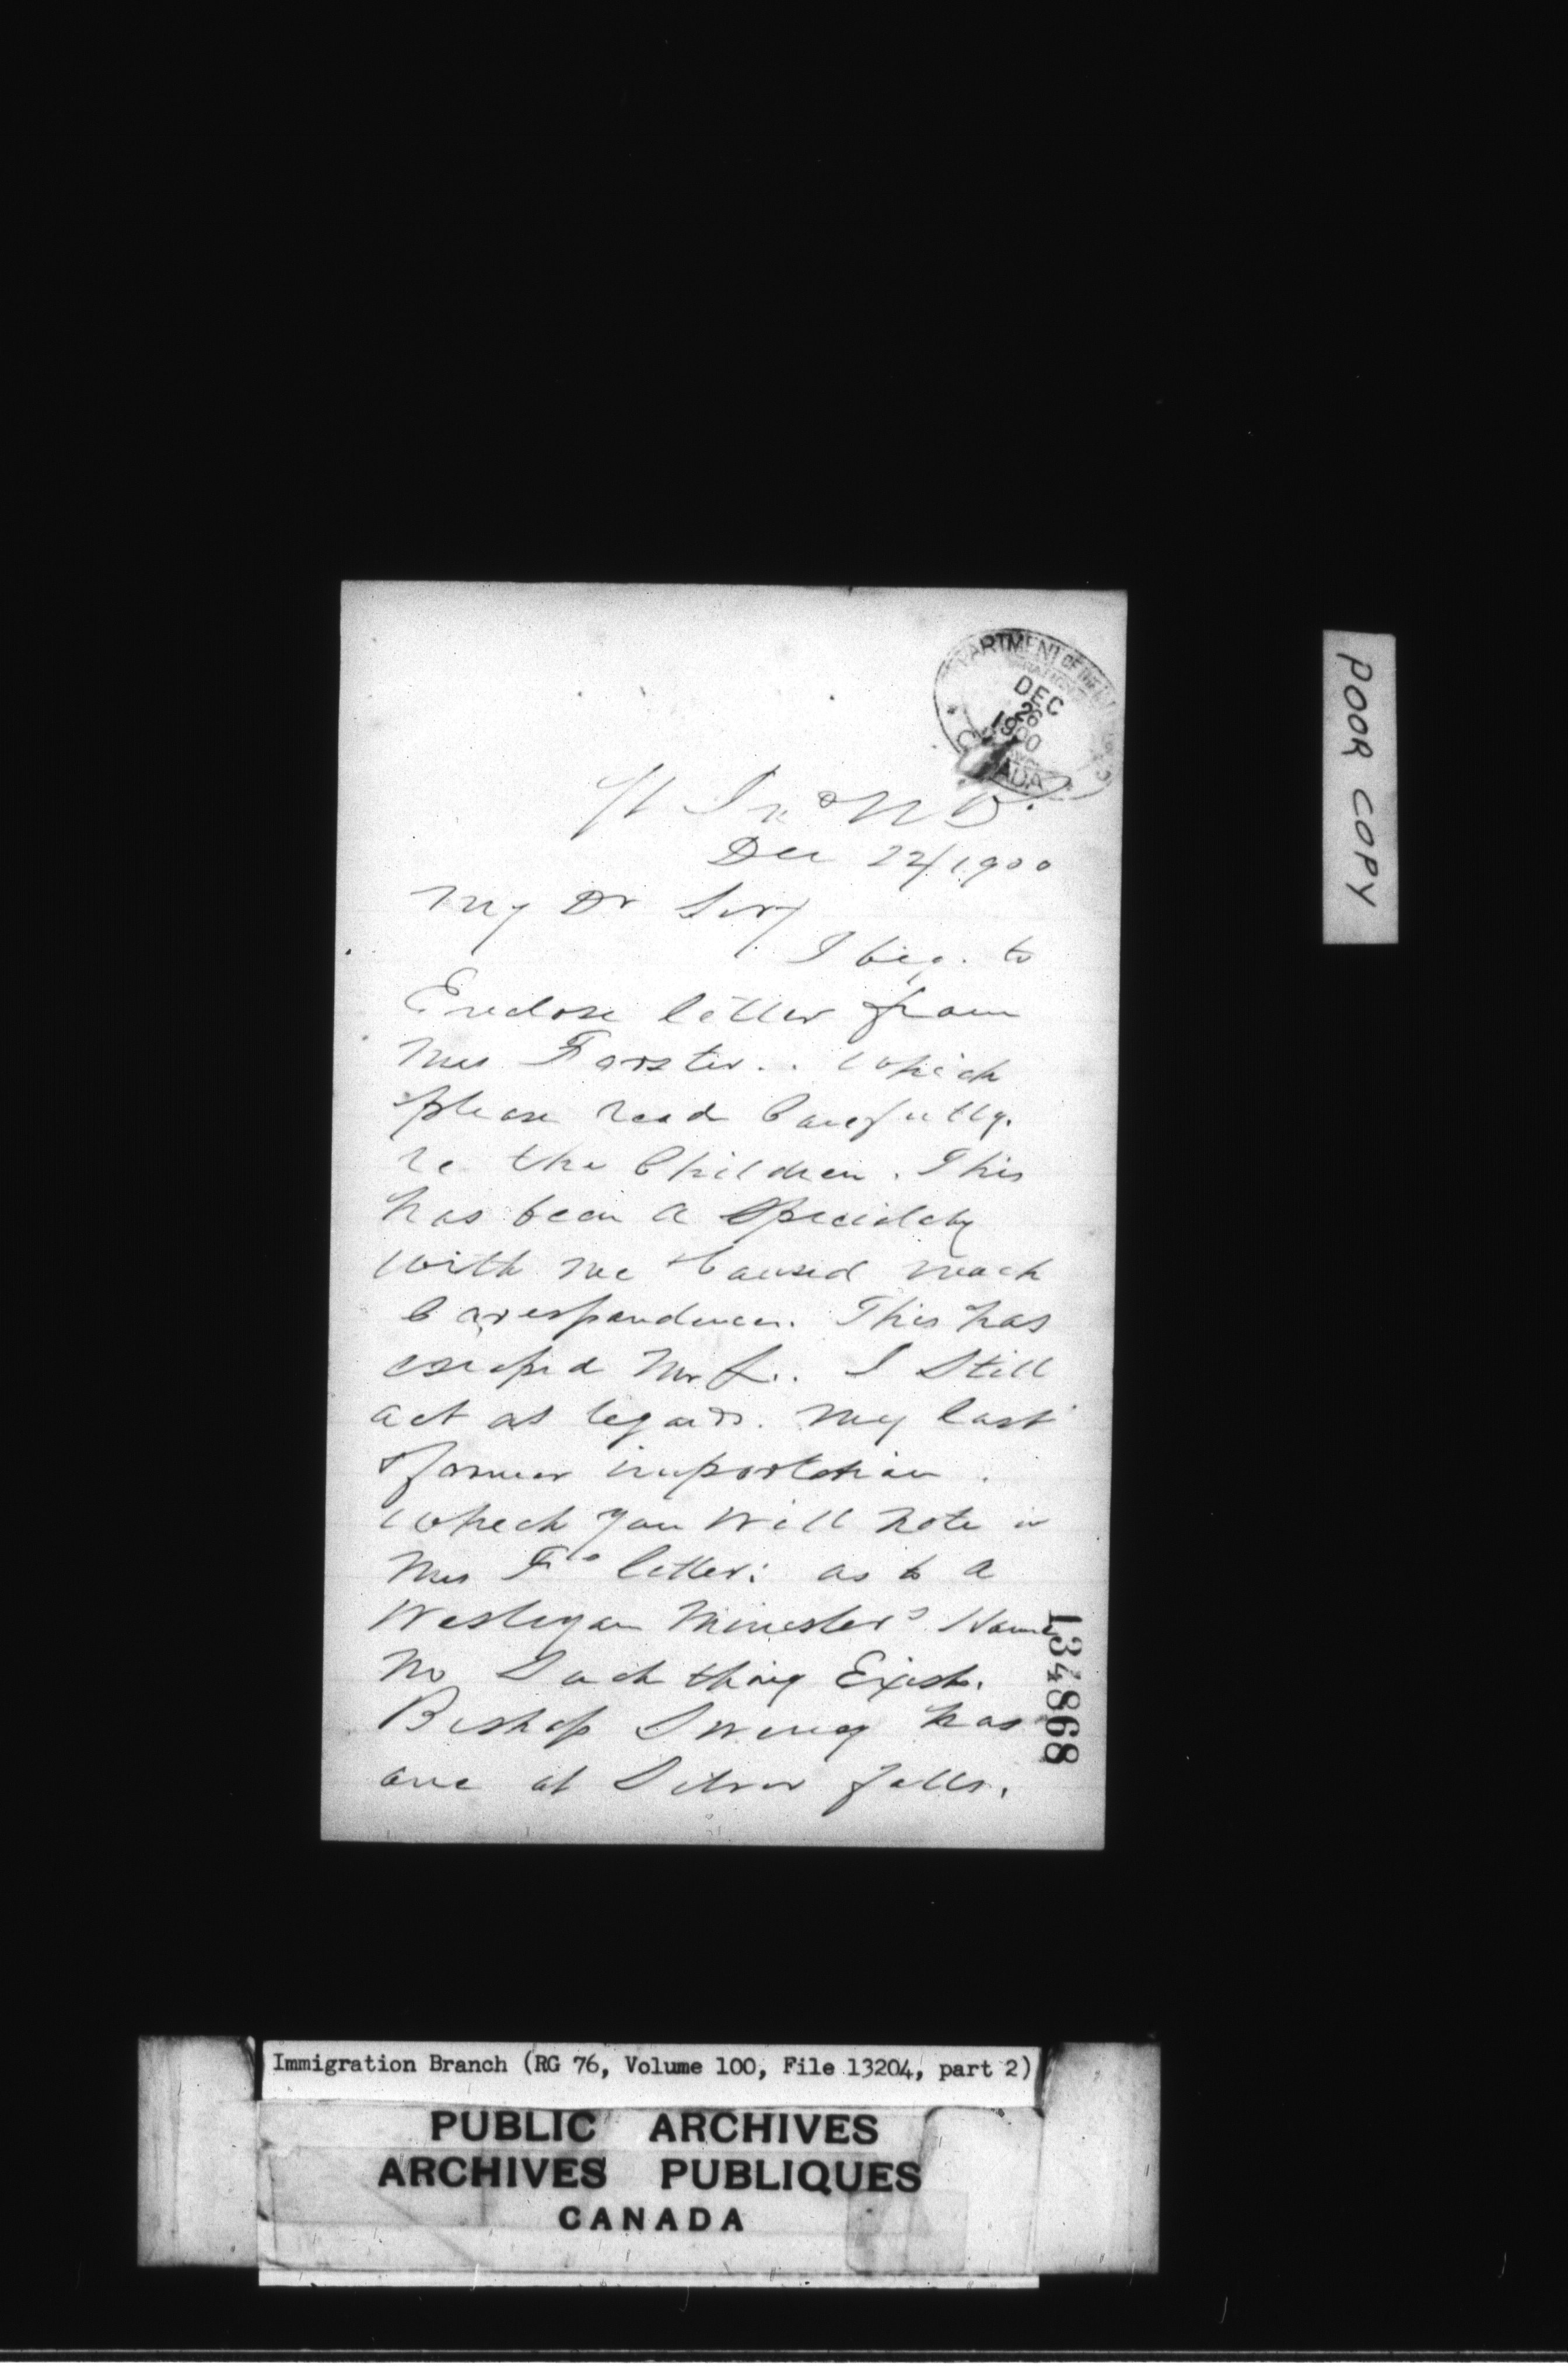 DEPARTMENT OF THE
DEC
26
1900
CANADA
St Jno N B.
Dec 22/1900
My Dr Sir/
I beg. to
Enclose letter from
Mrs Forster.. which
please read Carefully.
re the Children. This
has been a Speciality
with me & Caused much
Correspondence. This has
escaped Mr L.. I Still
act as regards. My last
& former importation.
which you Will note in
Mrs Fs letter: as to a
Wesleyan Minister's Home
No Such thing Exists.
Bishop Sweny has
one at Silver falls.
134868
POOR COPY
Immigration Branch (RG 76, Volume 100, File 13204, part 2)
PUBLIC ARCHIVES
ARCHIVES PUBLIQUES
CANADA